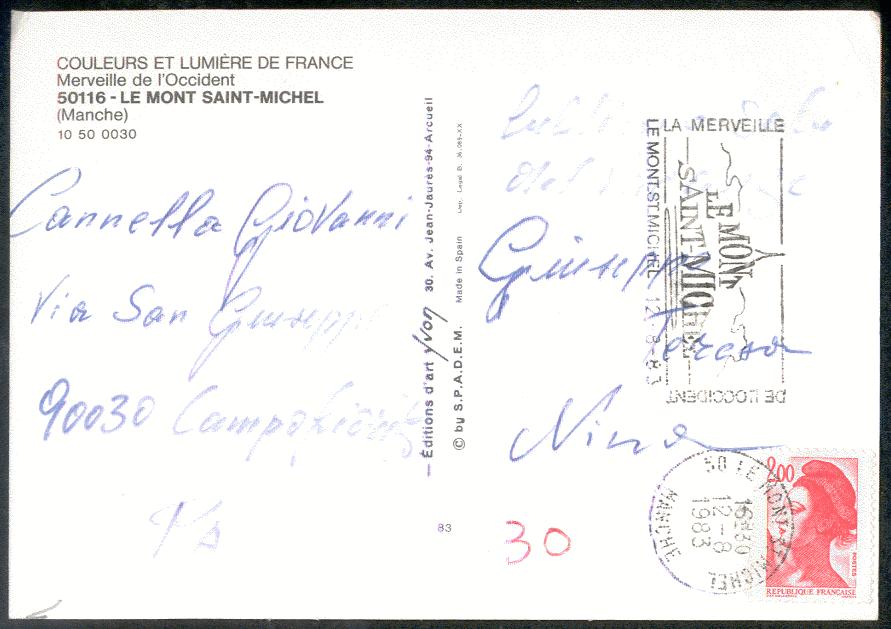 COULEURS ET LUMIÈRE DE FRANCE
Merveille de l'Occident
50116 - LE MONT SAINT-MICHEL
(Manche)
10 50 0030
Cannella Giovanni
Via San Giuseppe
90030
Pa
— Éditions d'art yvon 30. Av. Jean-Jaurès-94-Arcueil
© by S.P.A.D.E.M. Made in Spain Dep. Legal B. 36.085-XX
83
Giuseppe
Teresa
Nina
30
LA MERVEILLE
DE L'OCCIDENT
LE MONT-ST-MICHEL 12-8-83
LE MONT
SAINT-MICHEL
50 LE MONT-ST-MICHEL
16H30
12-8
1983
MANCHE
2,00
POSTES
REPUBLIQUE FRANÇAISE